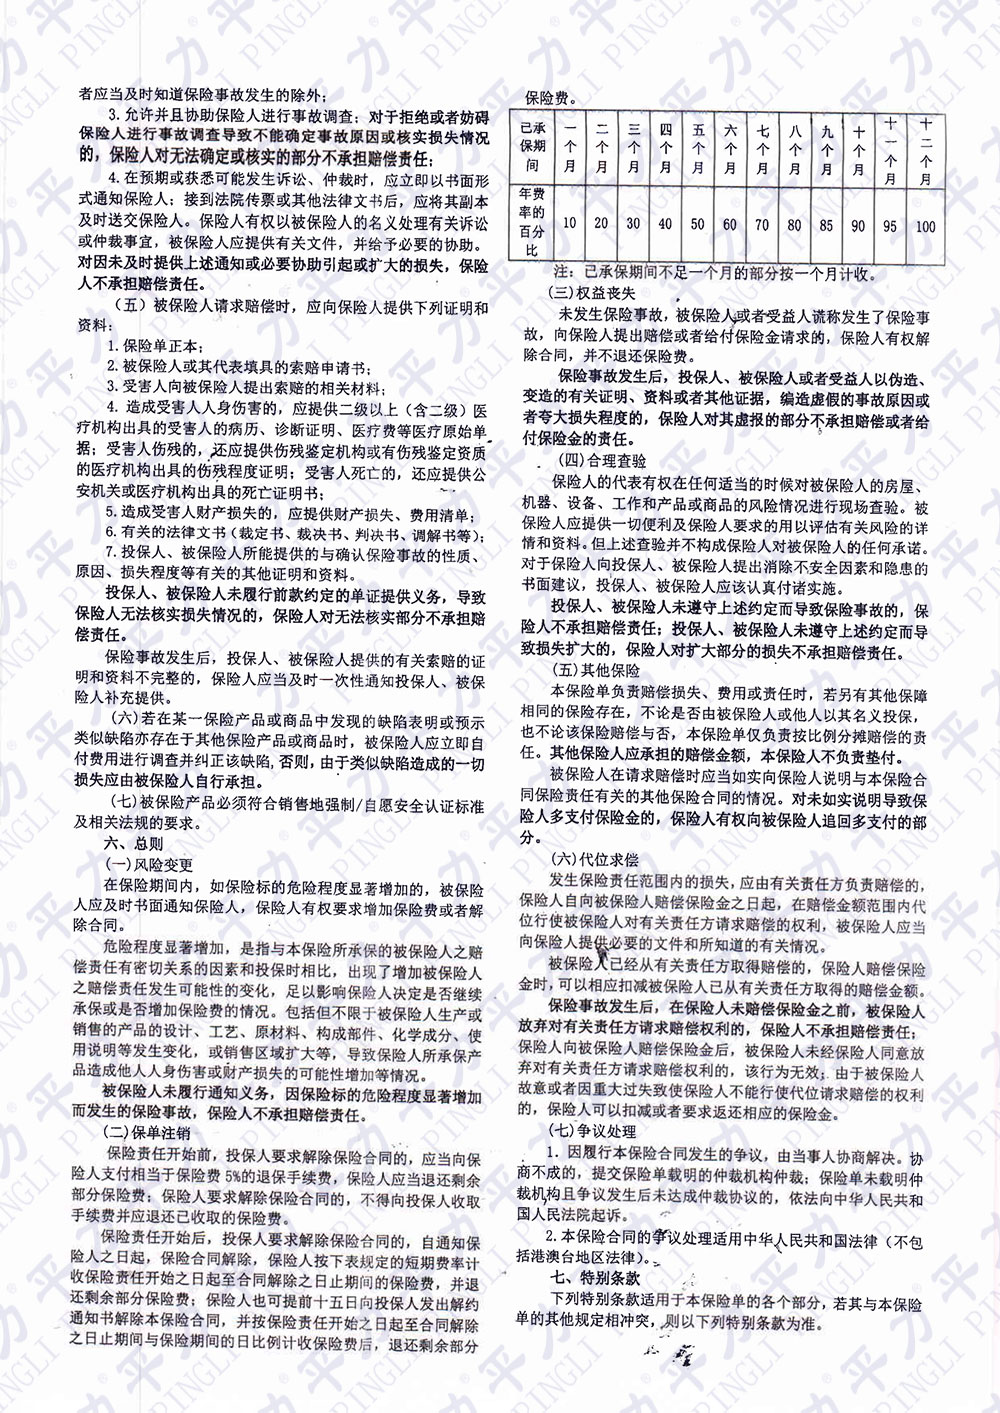 者应当及时知道保险事故发生的除外；
3.允许并且协助保险人进行事故调查；对于拒绝或者妨碍
保险人进行事故调查导致不能确定事故原因或核实损失情况
的，保险人对无法确定或核实的部分不承担赔偿责任；
4.在预期或获悉可能发生诉讼、仲裁时，应立即以书面形
式通知保险人；接到法院传票或其他法律文书后，应将其副本
及时送交保险人。保险人有权以被保险人的名义处理有关诉讼
或仲裁事宜，被保险人应提供有关文件，并给予必要的协助。
对因未及时提供上述通知或必要协助引起或扩大的损失，保险
人不承担赔偿责任。
（五）被保险人请求赔偿时，应向保险人提供下列证明和
资料：
1.保险单正本；
2.被保险人或其代表填具的索赔申请书；
3.受害人向被保险人提出索赔的相关材料；
4.造成受害人人身伤害的，应提供二级以上（含二级）医
疗机构出具的受害人的病历、诊断证明、医疗费等医疗原始单
据；受害人伤残的，还应提供伤残鉴定机构或有伤残鉴定资质
的医疗机构出具的伤残程度证明；受害人死亡的，还应提供公
安机关或医疗机构出具的死亡证明书；
5.造成受害人财产损失的，应提供财产损失、费用清单；
6.有关的法律文书（裁定书、裁决书、判决书、调解书等）；
7.投保人、被保险人所能提供的与确认保险事故的性质、
原因、损失程度等有关的其他证明和资料。
投保人、被保险人未履行前款约定的单证提供义务，导致
保险人无法核实损失情况的，保险人对无法核实部分不承担赔
偿责任。
保险事故发生后，投保人、被保险人提供的有关索赔的证
明和资料不完整的，保险人应当及时一次性通知投保人、被保
险人补充提供。
(六)若在某一保险产品或商品中发现的缺陷表明或预示
类似缺陷亦存在于其他保险产品或商品时，被保险人应立即自
付费用进行调查并纠正该缺陷，否则，由于类似缺陷造成的一切
损失应由被保险人自行承担。
(七)被保险产品必须符合销售地强制/自愿安全认证标准
及相关法规的要求。
六、总则
(一)风险变更
在保险期间内，如保险标的危险程度显著增加的，被保险
人应及时书面通知保险人，保险人有权要求增加保险费或者解
除合同。
危险程度显著增加，是指与本保险所承保的被保险人之赔
偿责任有密切关系的因素和投保时相比，出现了增加被保险人
之赔偿责任发生可能性的变化，足以影响保险人决定是否继续
承保或是否增加保险费的情况。包括但不限于被保险人生产或
销售的产品的设计、工艺、原材料、构成部件、化学成分、使
用说明等发生变化，或销售区域扩大等，导致保险人所承保产
品造成他人人身伤害或财产损失的可能性增加等情况。
被保险人未履行通知义务，因保险标的危险程度显著增加
而发生的保险事故，保险人不承担赔偿责任。
(二)保单注销
保险责任开始前，投保人要求解除保险合同的，应当向保
险人支付相当于保险费5%的退保手续费，保险人应当退还剩余
部分保险费；保险人要求解除保险合同的，不得向投保人收取
手续费并应退还已收取的保险费。
保险责任开始后，投保人要求解除保险合同的，自通知保
险人之日起，保险合同解除，保险人按下表规定的短期费率计
收保险责任开始之日起至合同解除之日止期间的保险费，并退
还剩余部分保险费；保险人也可提前十五日向投保人发出解约
通知书解除本保险合同，并按保险责任开始之日起至合同解除
之日止期间与保险期间的日比例计收保险费后，退还剩余部分
保险费。
已承保期间 一个月 二个月 三个月 四个月 五个月 六个月 七个月 八个月 九个月 十个月 十一个月 十二个月
年费率的百分比 10 20 30 40 50 60 70 80 85 90 95 100
注：已承保期间不足一个月的部分按一个月计收。
(三)权益丧失
未发生保险事故，被保险人或者受益人谎称发生了保险事
故，向保险人提出赔偿或者给付保险金请求的，保险人有权解
除合同，并不退还保险费。
保险事故发生后，投保人、被保险人或者受益人以伪造、
变造的有关证明、资料或者其他证据，编造虚假的事故原因或
者夸大损失程度的，保险人对其虚报的部分不承担赔偿或者给
付保险金的责任。
(四)合理查验
保险人的代表有权在任何适当的时候对被保险人的房屋、
机器、设备、工作和产品或商品的风险情况进行现场查验。被
保险人应提供一切便利及保险人要求的用以评估有关风险的详
情和资料。但上述查验并不构成保险人对被保险人的任何承诺。
对于保险人向投保人、被保险人提出消除不安全因素和隐患的
书面建议，投保人、被保险人应该认真付诸实施。
投保人、被保险人未遵守上述约定而导致保险事故的，保
险人不承担赔偿责任；投保人、被保险人未遵守上述约定而导
致损失扩大的，保险人对扩大部分的损失不承担赔偿责任。
(五)其他保险
本保险单负责赔偿损失、费用或责任时，若另有其他保障
相同的保险存在，不论是否由被保险人或他人以其名义投保，
也不论该保险赔偿与否，本保险单仅负责按比例分摊赔偿的责
任。其他保险人应承担的赔偿金额，本保险人不负责垫付。
被保险人在请求赔偿时应当如实向保险人说明与本保险合
同保险责任有关的其他保险合同的情况。对未如实说明导致保
险人多支付保险金的，保险人有权向被保险人追回多支付的部
分。
(六)代位求偿
发生保险责任范围内的损失，应由有关责任方负责赔偿的，
保险人自向被保险人赔偿保险金之日起，在赔偿金额范围内代
位行使被保险人对有关责任方请求赔偿的权利，被保险人应当
向保险人提供必要的文件和所知道的有关情况。
被保险人已经从有关责任方取得赔偿的，保险人赔偿保险
金时，可以相应扣减被保险人已从有关责任方取得的赔偿金额。
保险事故发生后，在保险人未赔偿保险金之前，被保险人
放弃对有关责任方请求赔偿权利的，保险人不承担赔偿责任；
保险人向被保险人赔偿保险金后，被保险人未经保险人同意放
弃对有关责任方请求赔偿权利的，该行为无效；由于被保险人
故意或者因重大过失致使保险人不能行使代位请求赔偿的权利
的，保险人可以扣减或者要求返还相应的保险金。
(七)争议处理
1．因履行本保险合同发生的争议，由当事人协商解决。协
商不成的，提交保险单载明的仲裁机构仲裁；保险单未载明仲
裁机构且争议发生后未达成仲裁协议的，依法向中华人民共和
国人民法院起诉。
2.本保险合同的争议处理适用中华人民共和国法律（不包
括港澳台地区法律）。
七、特别条款
下列特别条款适用于本保险单的各个部分，若其与本保险
单的其他规定相冲突，则以下列特别条款为准。